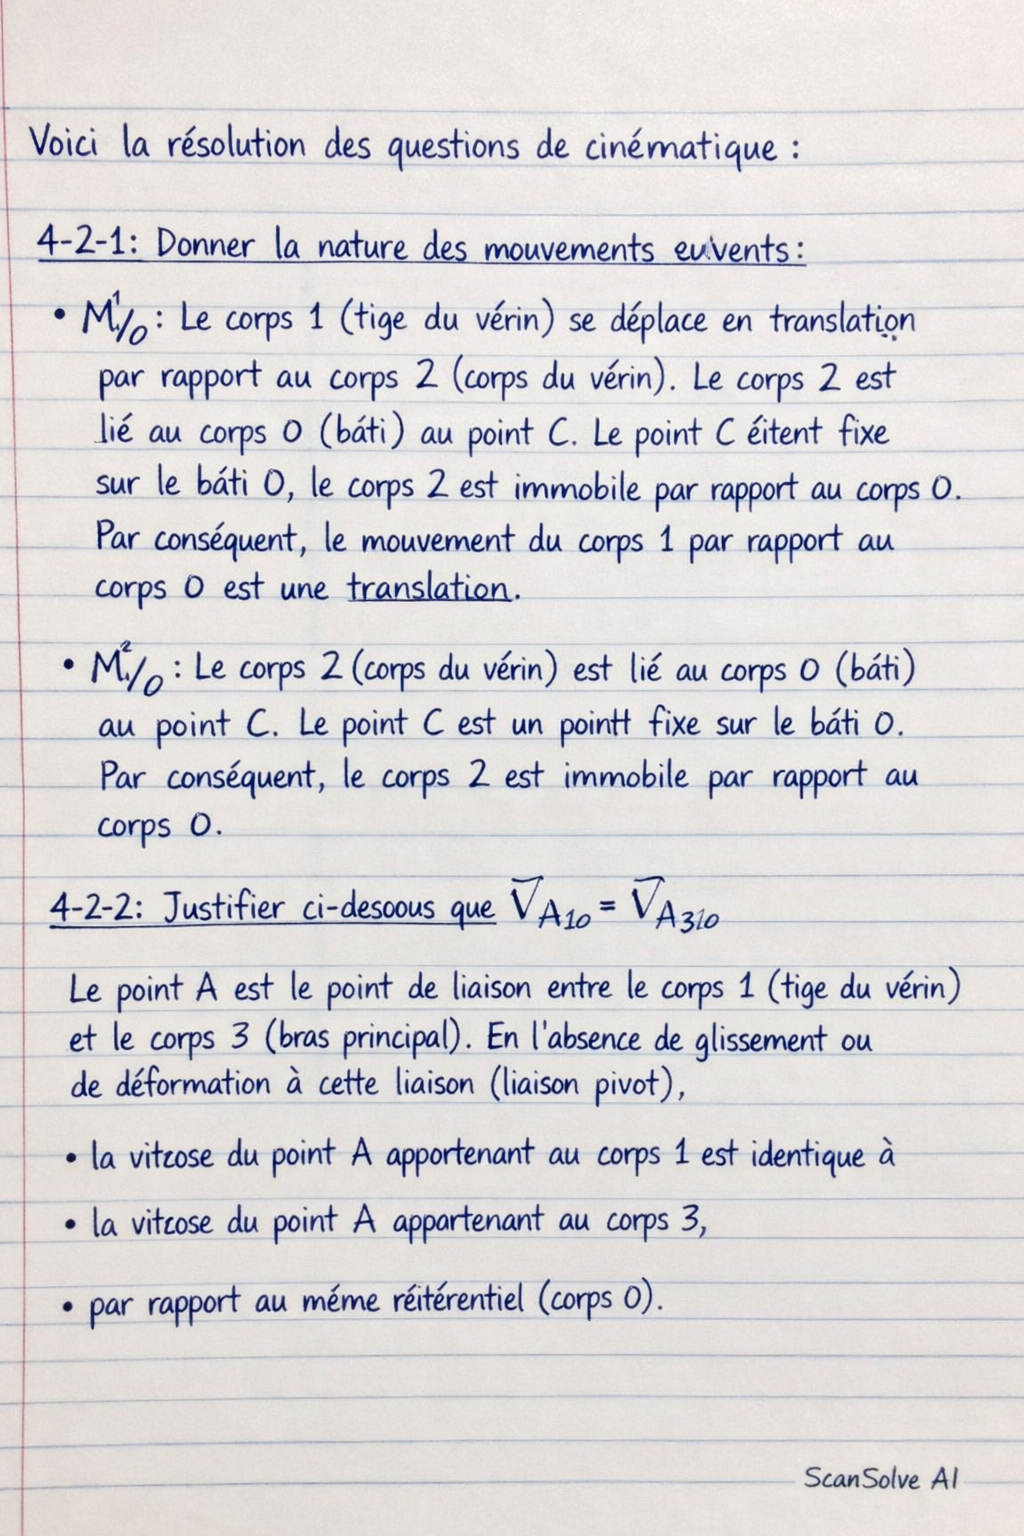 Voici la résolution des questions de cinématique :
4-2-1: Donner la nature des mouvements euivents:
• M1/0 : Le corps 1 (tige du vérin) se déplace en translation
par rapport au corps 2 (corps du vérin). Le corps 2 est
lié au corps 0 (báti) au point C. Le point C éitent fixe
sur le báti 0, le corps 2 est immobile par rapport au corps 0.
Par conséquent, le mouvement du corps 1 par rapport au
corps 0 est une translation.
• M2/0 : Le corps 2 (corps du vérin) est lié au corps 0 (báti)
au point C. Le point C est un pointt fixe sur le báti 0.
Par conséquent, le corps 2 est immobile par rapport au
corps 0.
4-2-2: Justifier ci-desoous que V̅A10 = V̅A310
Le point A est le point de liaison entre le corps 1 (tige du vérin)
et le corps 3 (bras principal). En l'absence de glissement ou
de déformation à cette liaison (liaison pivot),
• la vitcose du point A apportenant au corps 1 est identique à
• la vitcose du point A appartenant au corps 3,
• par rapport au méme réitérentiel (corps 0).
ScanSolve AI